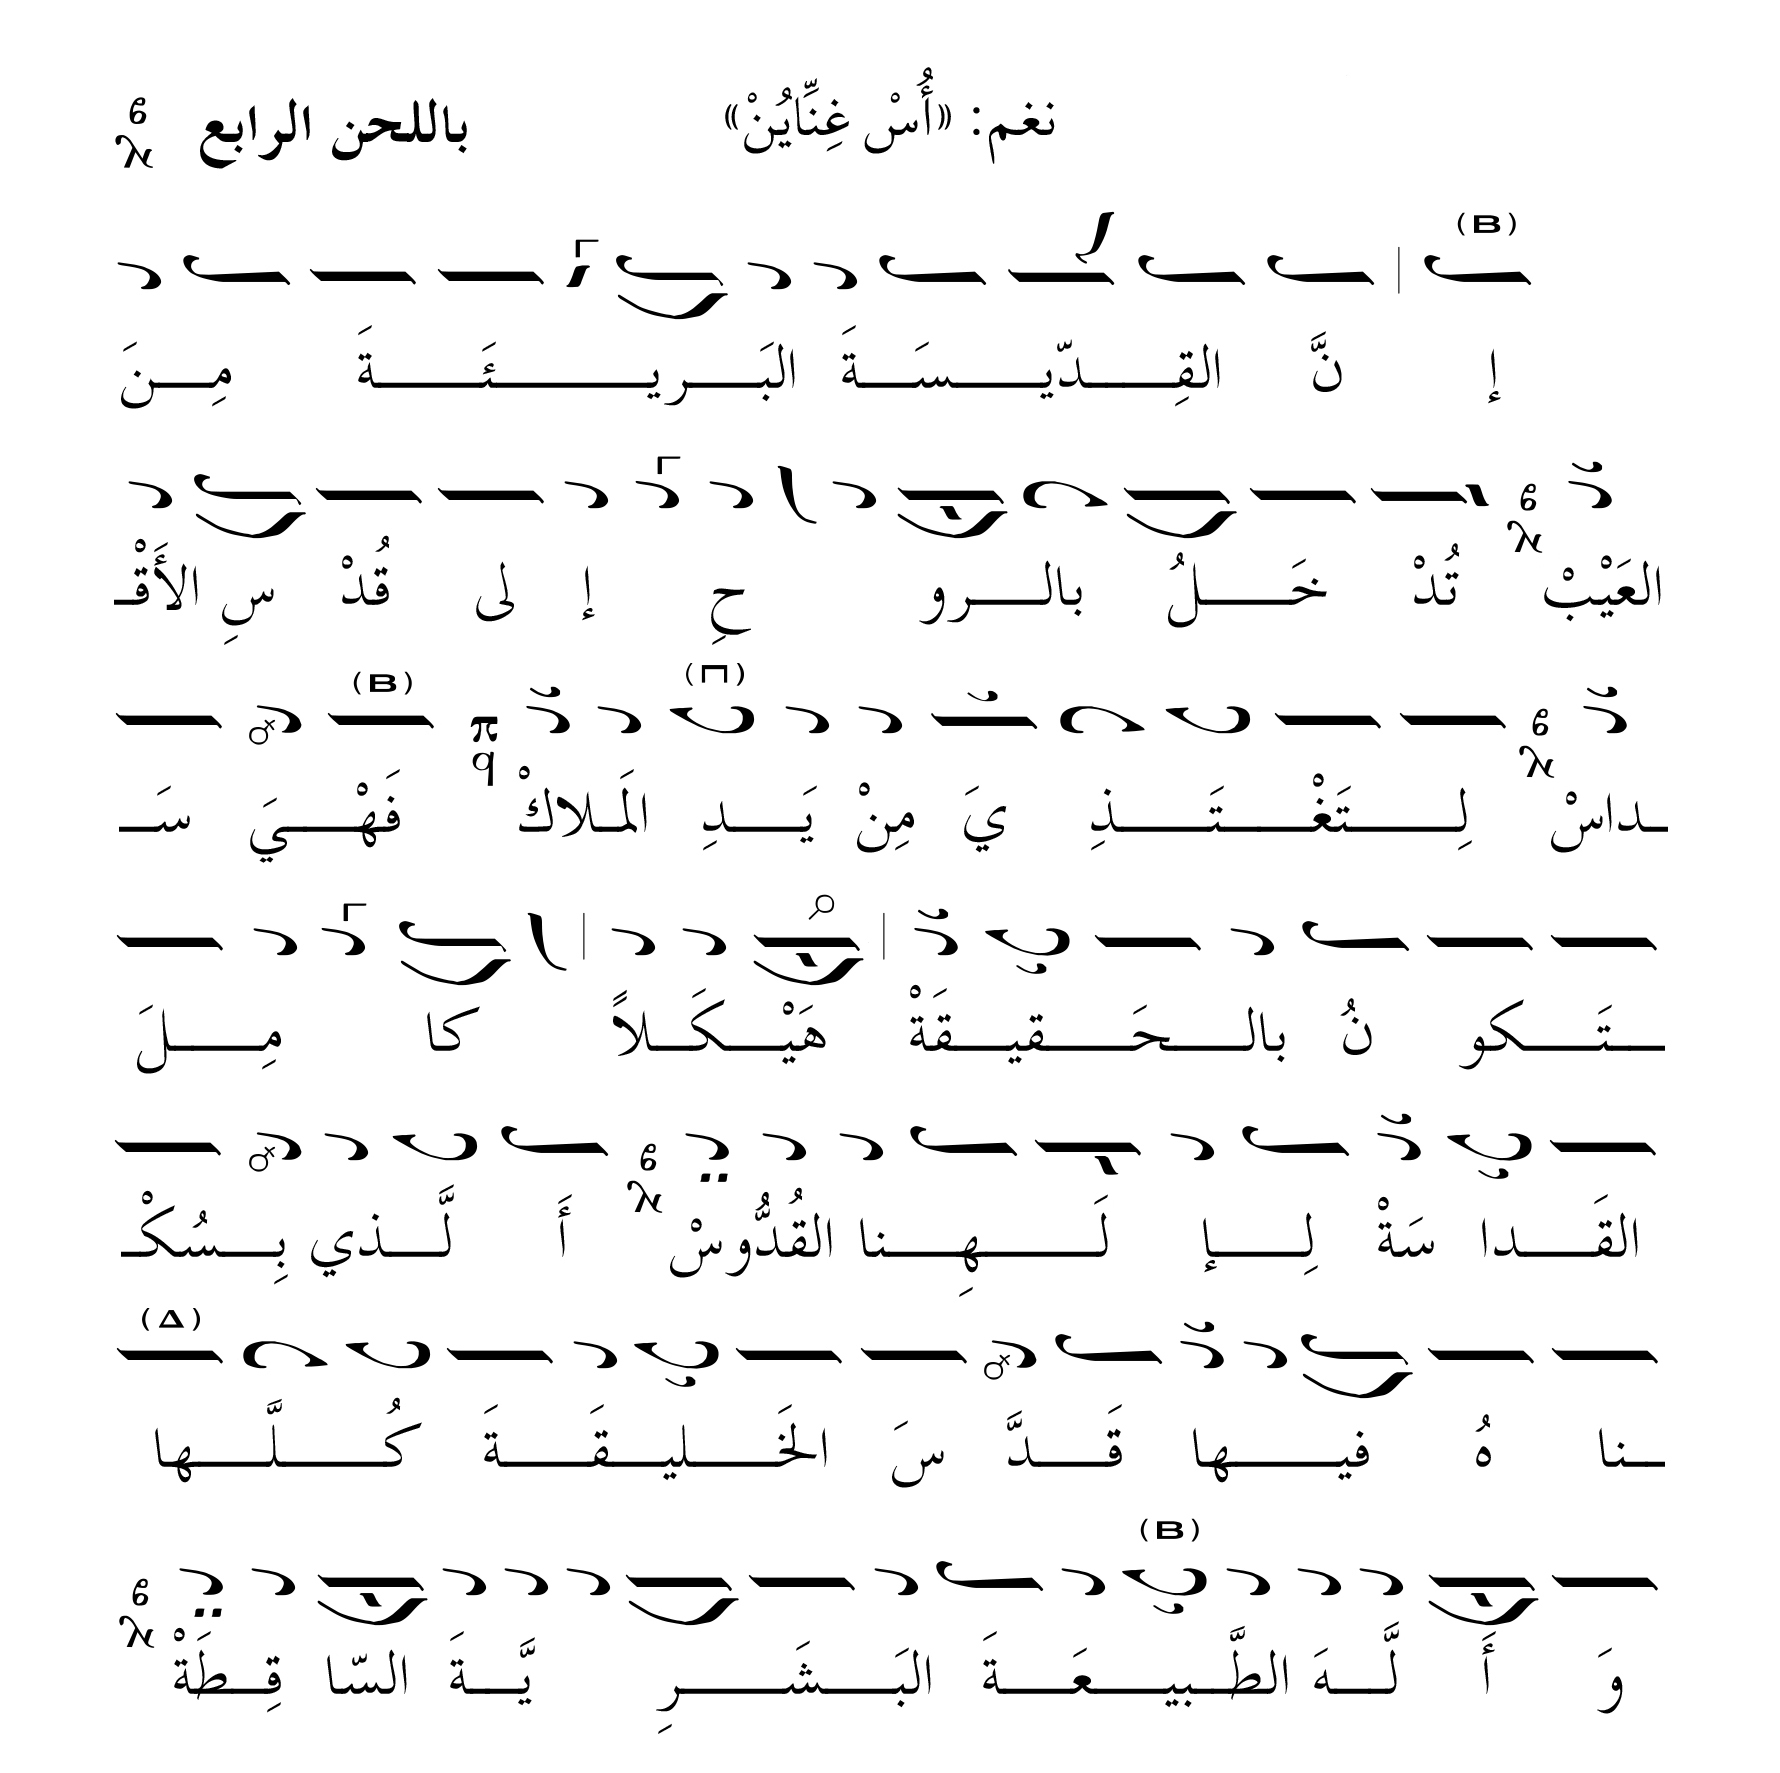 نغم: «أُسْ غِنِّايُنْ» باللحن الرابع
(B)
إ نَّ القِـدّيـسَـةَ البَـريـئَـةَ مِـنَ
العَيْبْ تُدْ خَـلُ بالـرو حِ إ لى قُدْ سِ الأَقْـ
(Π) (B)
ـداسْ لِـتَغْـتَـذِ يَ مِنْ يَـدِ المَلاكْ فَهْـيَ سَـ
ـتَـكو نُ بالـحَـقيـقَةْ هَيْـكَـلاً كا مِـلَ
القَـدا سَةْ لِـإ لَـهِـنا القُدُّوسْ أَ لَّـذي بِـسُكْـ
(Δ)
ـنا هُ فيـها قَـدَّ سَ الخَـليـقَـةَ كُـلَّـها
(B)
وَ أَ لَّـهَ الطَّبيـعَـةَ البَـشَـرِ يَّـةَ السّا قِـطَةْ